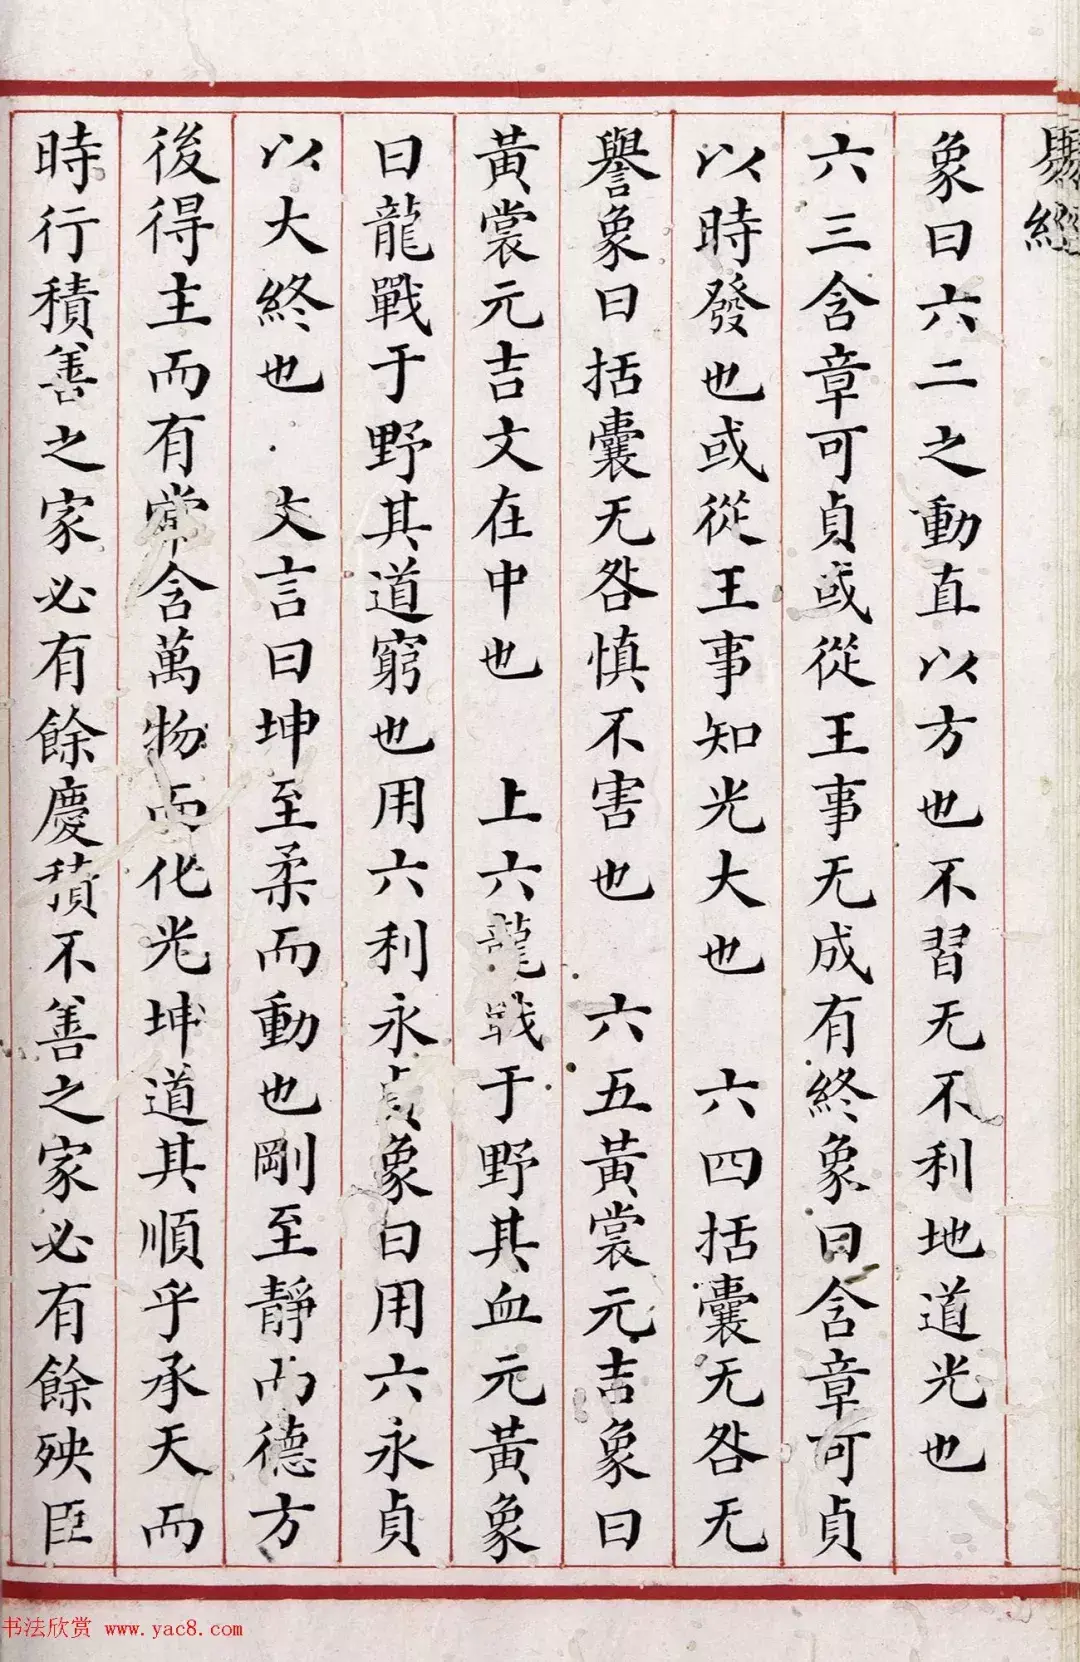 易經
象曰六二之動直以方也不習无不利地道光也
六三含章可貞或從王事无成有終象曰含章可貞
以時發也或從王事知光大也 六四括囊无咎无
譽象曰括囊无咎慎不害也 六五黃裳元吉象曰
黃裳元吉文在中也 上六龍戰于野其血元黃象
曰龍戰于野其道窮也用六利永貞象曰用六永貞
以大終也 文言曰坤至柔而動也剛至靜而德方
後得主而有常含萬物而化光坤道其順乎承天而
時行積善之家必有餘慶積不善之家必有餘殃臣
书法欣赏 www.yac8.com